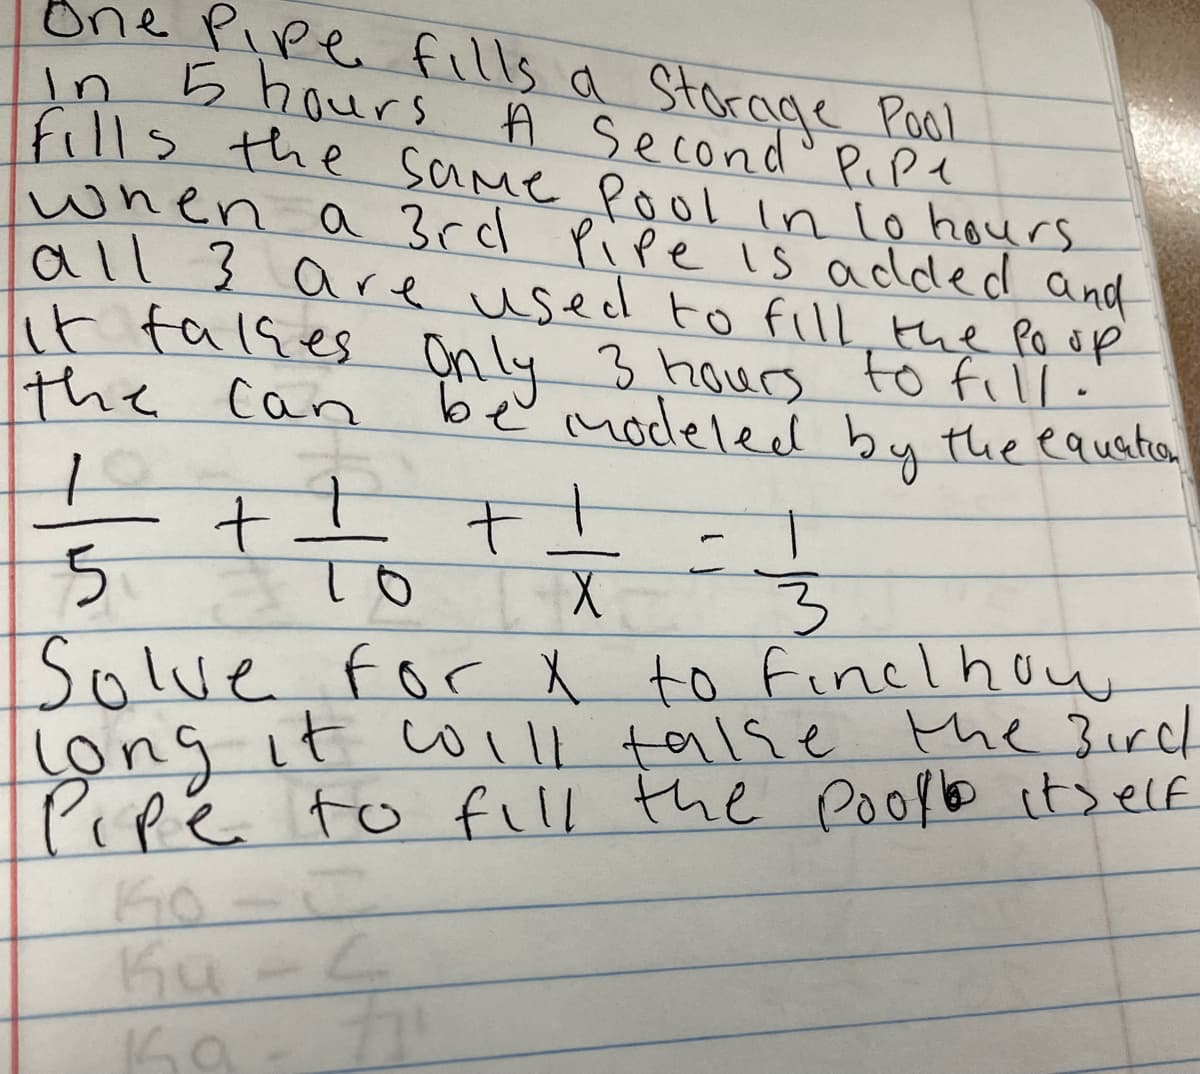 One Pipe fills a Storage Pool
in 5 hours A Second Pipe
fills the same Pool in 10 hours
when a 3rd Pipe is added and
all 3 are used to fill the Poop
it takes Only 3 hours to fill.
the can be modeled by the equation
1/5 + 1/10 + 1/x = 1/3
Solve for x to find how
long it will take the 3ird
Pipe to fill the Pool itself
Ko - こ
Ku - く
Ka - か